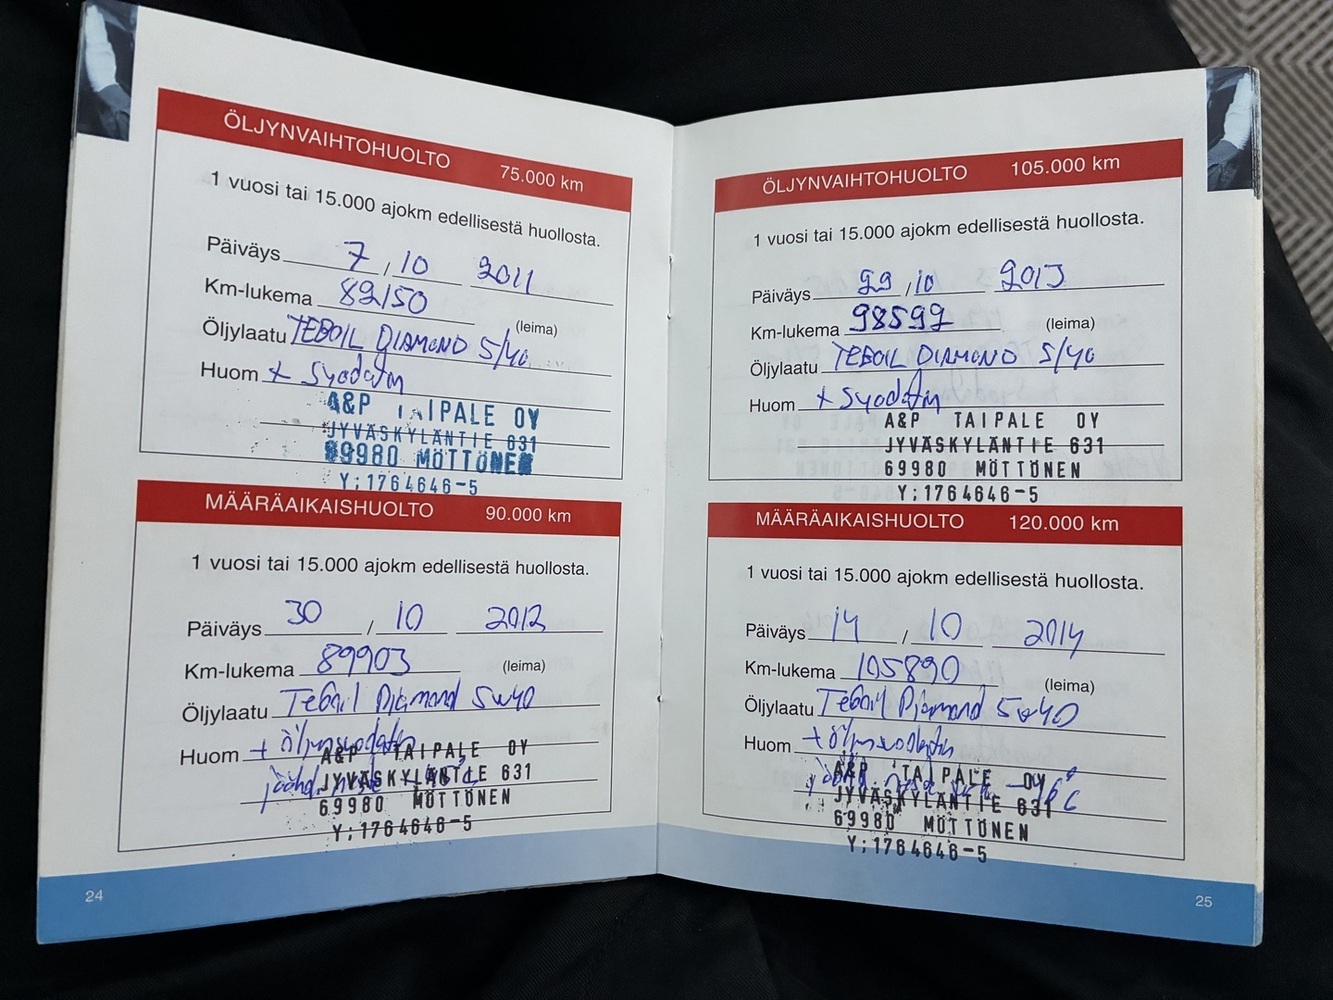 ÖLJYNVAIHTOHUOLTO 75.000 km
1 vuosi tai 15.000 ajokm edellisestä huollosta.
Päiväys 7 / 10 2011
Km-lukema 82150
(leima)
Öljylaatu TEBOIL DIAMOND 5/40
Huom + Syodatin
A&P TAIPALE OY
JYVÄSKYLÄNTIE 631
69980 MÖTTÖNEN
Y:1764646-5
MÄÄRÄAIKAISHUOLTO 90.000 km
1 vuosi tai 15.000 ajokm edellisestä huollosta.
Päiväys 30 / 10 2012
Km-lukema 89903 (leima)
Öljylaatu Teboil Diamond 5w40
Huom + öljynsuodatin
A&P TAIPALE OY
JYVÄSKYLÄNTIE 631
69980 MÖTTÖNEN
Y:1764646-5
24
ÖLJYNVAIHTOHUOLTO 105.000 km
1 vuosi tai 15.000 ajokm edellisestä huollosta.
Päiväys 29 / 10 2013
Km-lukema 98592 (leima)
Öljylaatu TEBOIL DIAMOND 5/40
Huom + Syodatin
A&P TAIPALE OY
JYVÄSKYLÄNTIE 631
69980 MÖTTÖNEN
Y:1764646-5
MÄÄRÄAIKAISHUOLTO 120.000 km
1 vuosi tai 15.000 ajokm edellisestä huollosta.
Päiväys 14 / 10 2014
Km-lukema 105890
(leima)
Öljylaatu Teboil Diamond 5w40
Huom + öljynsuodatin
A&P TAIPALE OY
JYVÄSKYLÄNTIE 631
69980 MÖTTÖNEN
Y:1764646-5
25